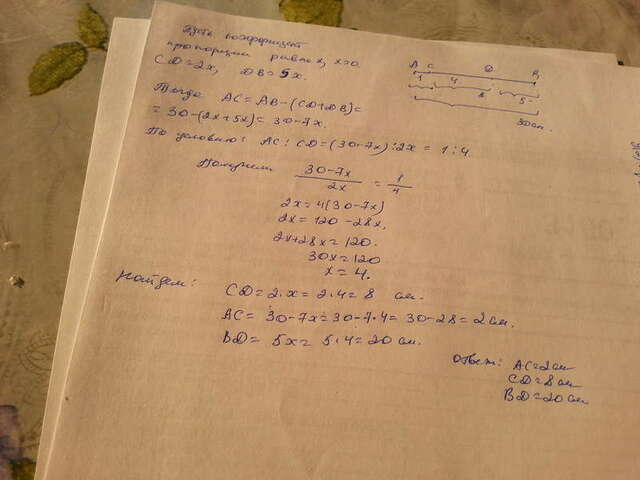 Пусть коэффициент
пропорции равно x, x>0.
CD=2x, DB=5x.
Тогда AC=AB-(CD+DB)=
=30-(2x+5x)=30-7x.
По условию: AC:CD=(30-7x):2x=1:4
Получим
30-7x / 2x = 1/4
2x=4(30-7x)
2x=120-28x,
2x+28x=120.
30x=120
x=4.
Найдем:
CD=2·x=2·4=8 см.
AC=30-7x=30-7·4=30-28=2см.
BD=5x=5·4=20см.
Ответ: AC=2см
CD=8см
BD=20см
A C D B
1 4
5
30см.